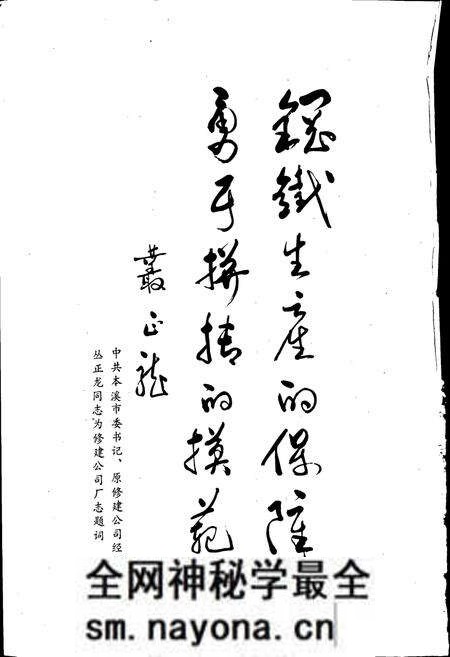 鋼鐵生產的保障
勇于拼搏的模范
叢正龍
中共本溪市委书记、原修建公司经
丛正龙同志为修建公司厂志题词
全网神秘学最全
sm.nayona.cn